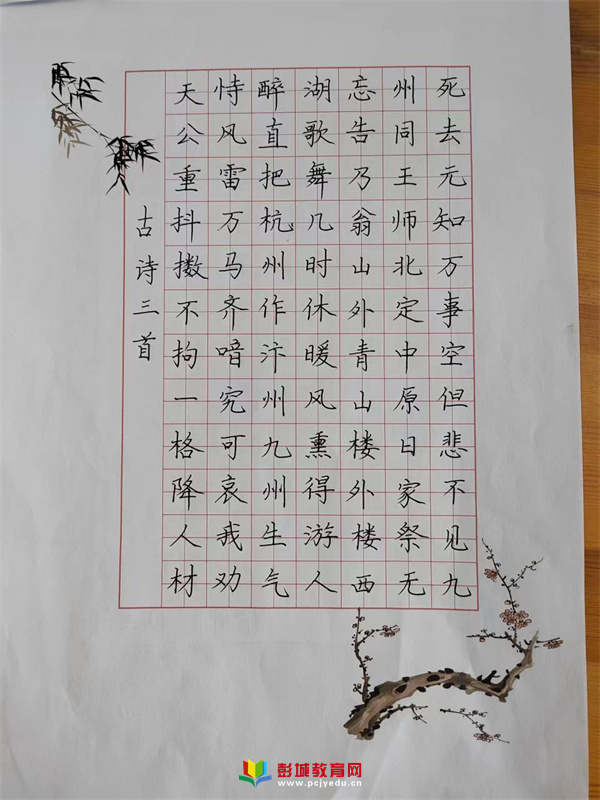 死去元知万事空但悲不见九
州同王师北定中原日家祭无
忘告乃翁山外青山楼外楼西
湖歌舞几时休暖风熏得游人
醉直把杭州作汴州九州生气
恃风雷万马齐喑究可哀我劝
天公重抖擞不拘一格降人材
古诗三首
彭城教育网
www.pcjyedu.cn